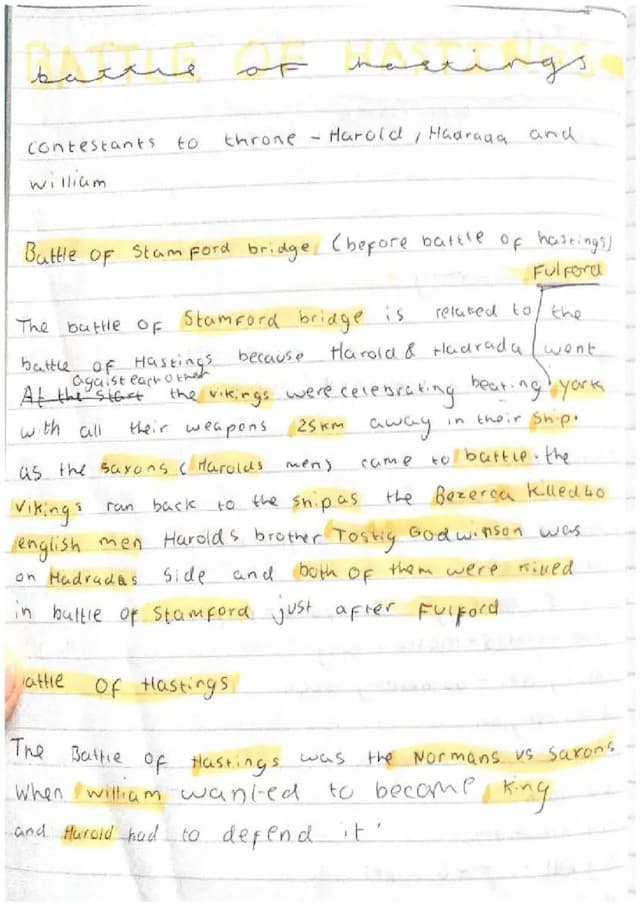 BATTLE OF HASTINGS
battle of hastings
contestants to throne - Harold, Hadrada and
william
Battle OF Stamford bridge (before battle of hastings)
Fulford
The battle of Stamford bridge is related to the
battle of Hastings because Harold & Hadrada went
agaist each other
At the start the vikings were celebrating beating york
with all their weapons 25km away in their ship.
as the saxons (Harolds men) came to battle. the
vikings ran back to the ship as the Bezerca killed 40
english men Harolds brother Tostig Godwinson was
on Hadradas side and both of them were killed
in battle of Stamford just after Fulford
attle OF Hastings
The Battle of Hastings was the Normans vs Saxons
When william wanted to become King
and Harold had to defend it.